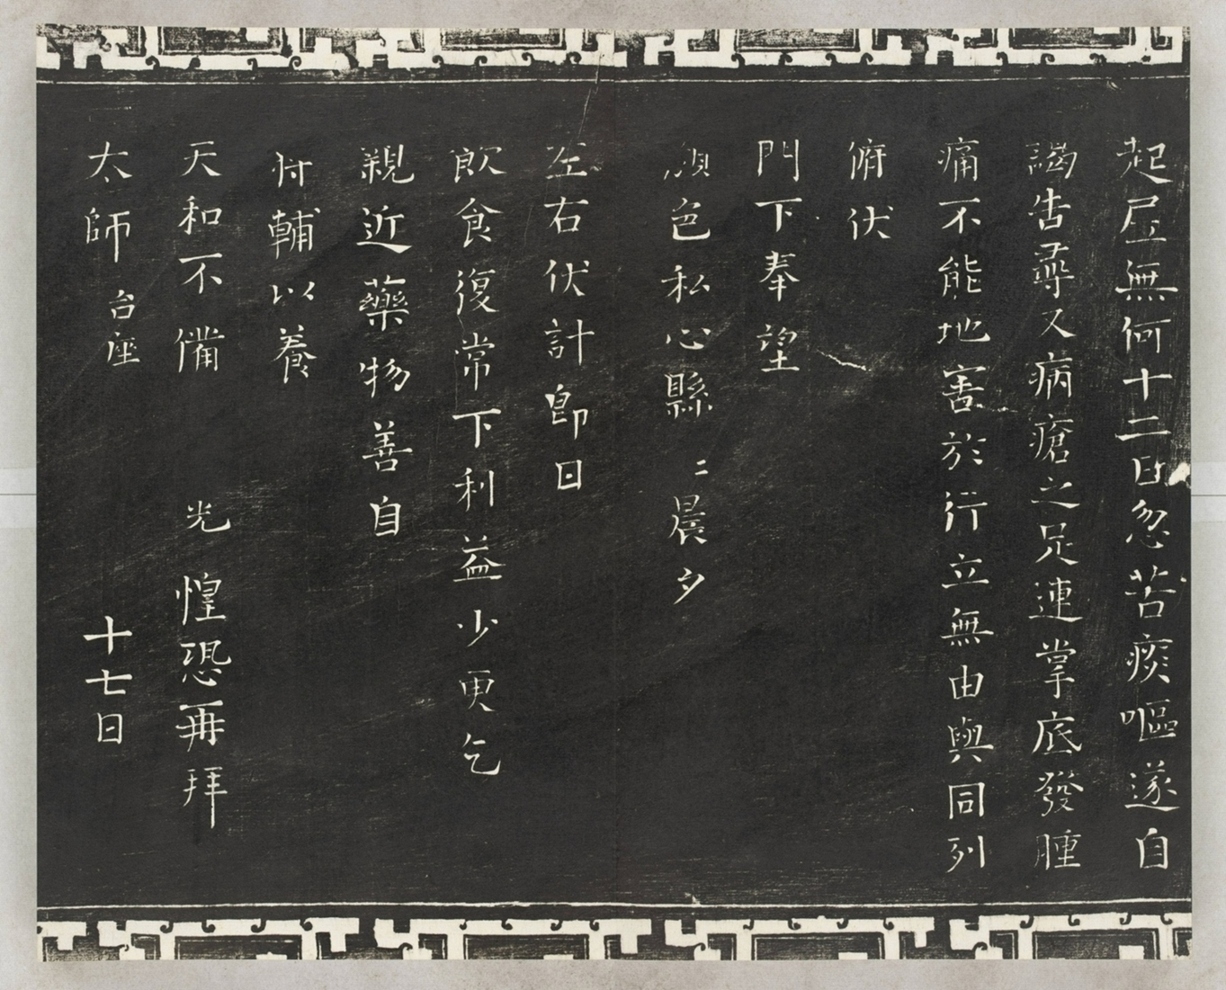 起居無何十二日忽苦痰嘔遂自
謁告尋又病瘡之足連掌底發腫
痛不能地害於行立無由與同列
俯伏
門下奉望
顔色私心縣〻晨夕
左右伏計即日
飲食復常下利益少更乞
親近藥物善自
將輔以養
天和不備 光 惶恐再拜
太師 台座 十七日